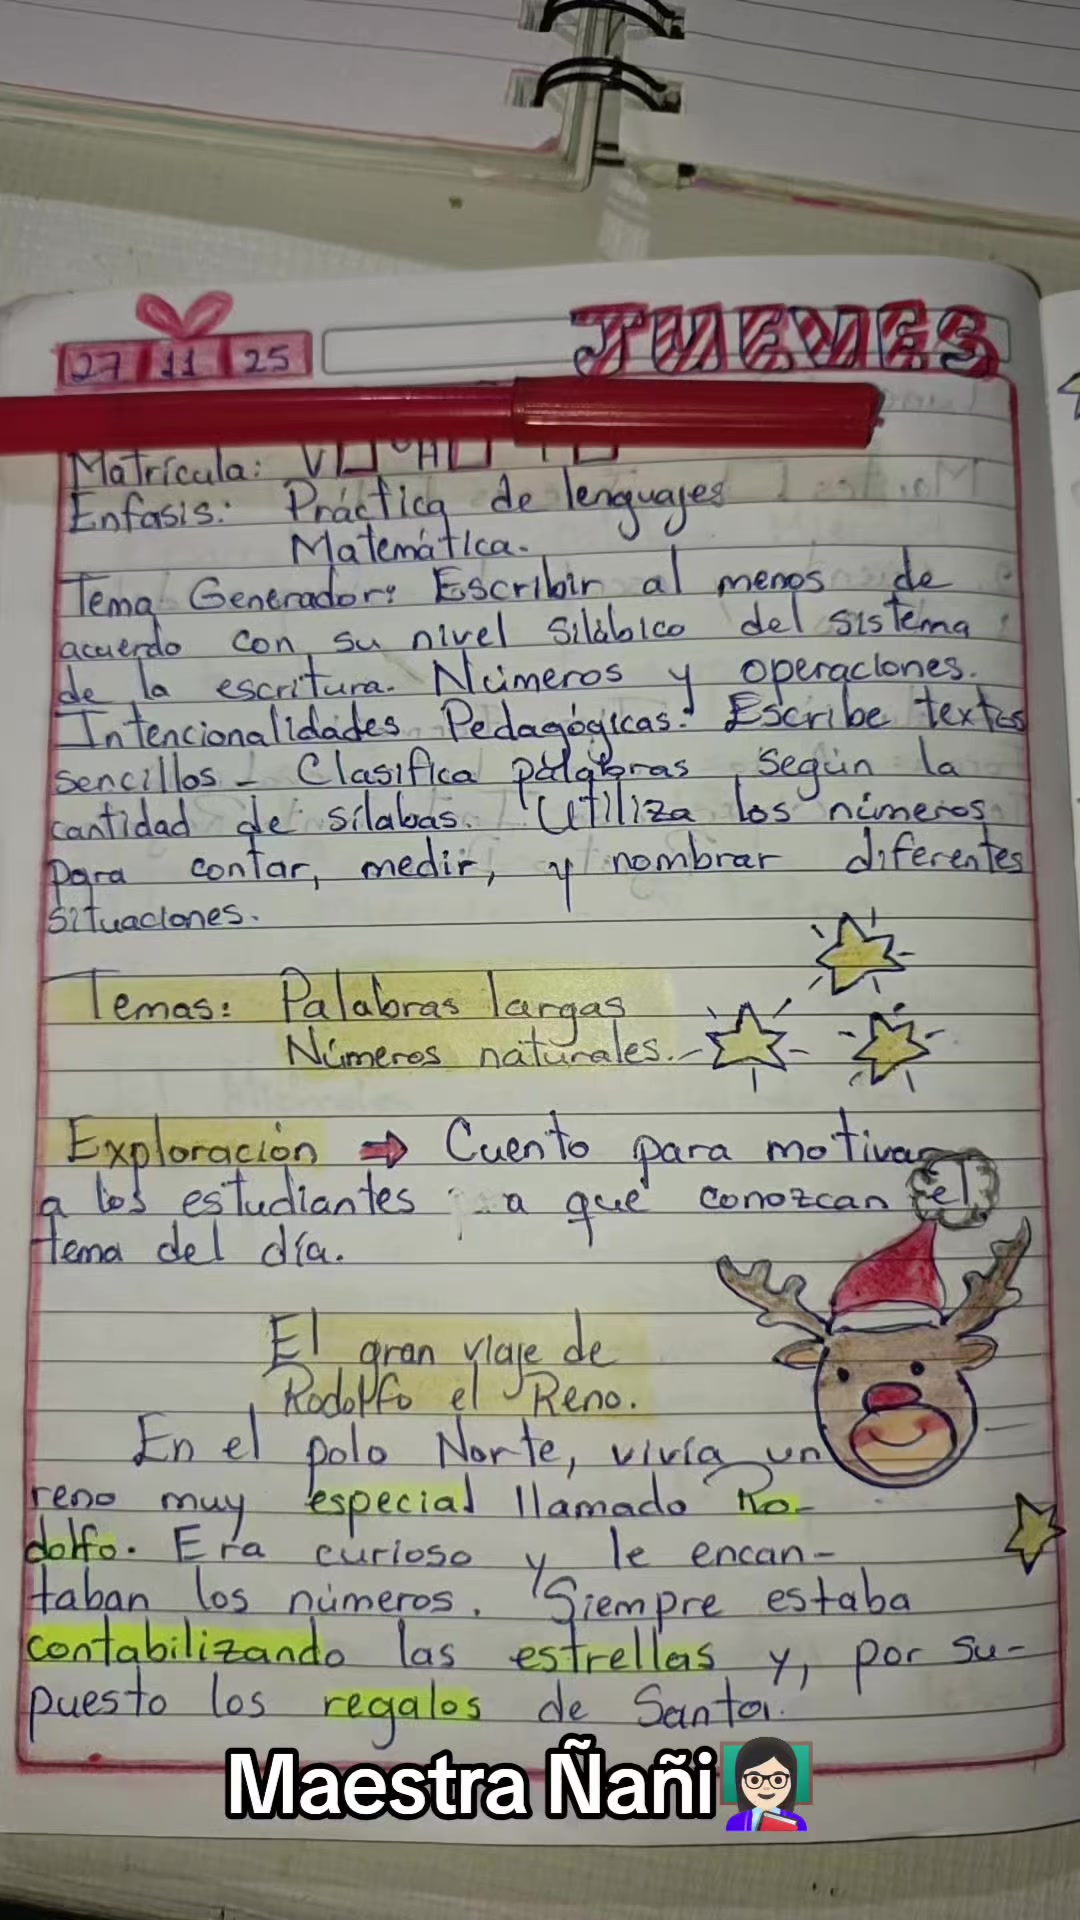 27 11 25 JUEVES
Matrícula: V H T
Enfasis: Práctica de lenguajes
Matemática.
Tema Generador: Escribir al menos de
acuerdo con su nivel silábico del sistema
de la escritura. Números y operaciones.
Intencionalidades Pedagógicas: Escribe textos
sencillos - Clasifica palabras según la
cantidad de sílabas. Utiliza los números
para contar, medir, y nombrar diferentes
situaciones.
Temas: Palabras largas
Números naturales.
Exploración → Cuento para motivar
a los estudiantes a que conozcan el
tema del día.
El gran viaje de
Rodolfo el Reno.
En el polo Norte, vivía un
reno muy especial llamado Ro-
dolfo. Era curioso y le encan-
taban los números. Siempre estaba
contabilizando las estrellas y, por su-
puesto los regalos de Santa.
Maestra Ñañi